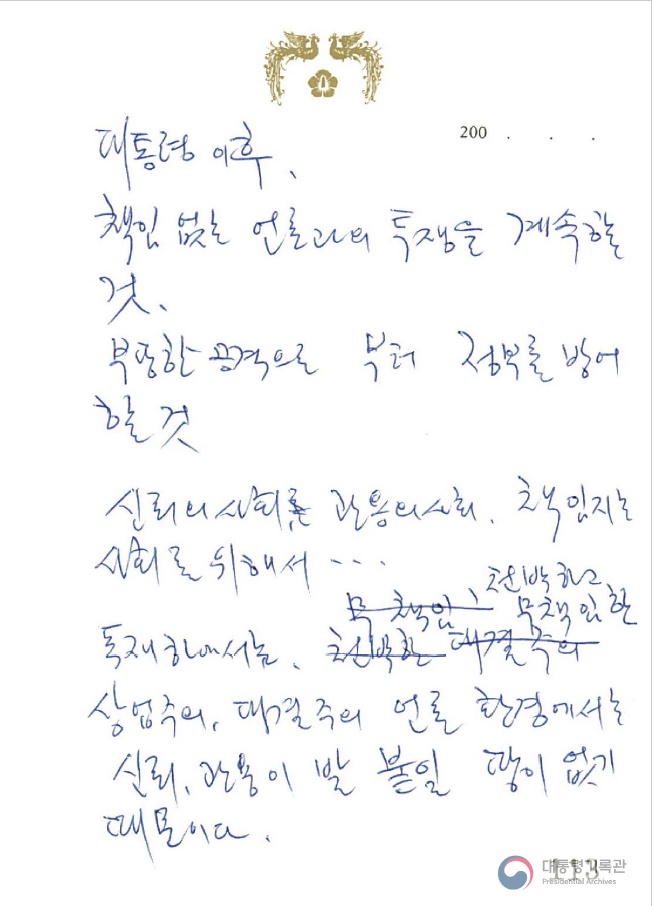 200 . . .
대통령 이후.
책임 없는 언론과의 투쟁을 계속할
것.
부당한 공격으로 부터 정부를 방어
할 것
신뢰의 사회, 관용의 사회, 책임지는
사회로 위해서 ...
천박하고
무책임, 무책임한
독재하에서는, 천박한 대결주의
상업주의, 대결주의 언론 환경에서는
신뢰, 관용이 발 붙일 땅이 없기
때문이다.
113
대통령기록관
Presidential Archives